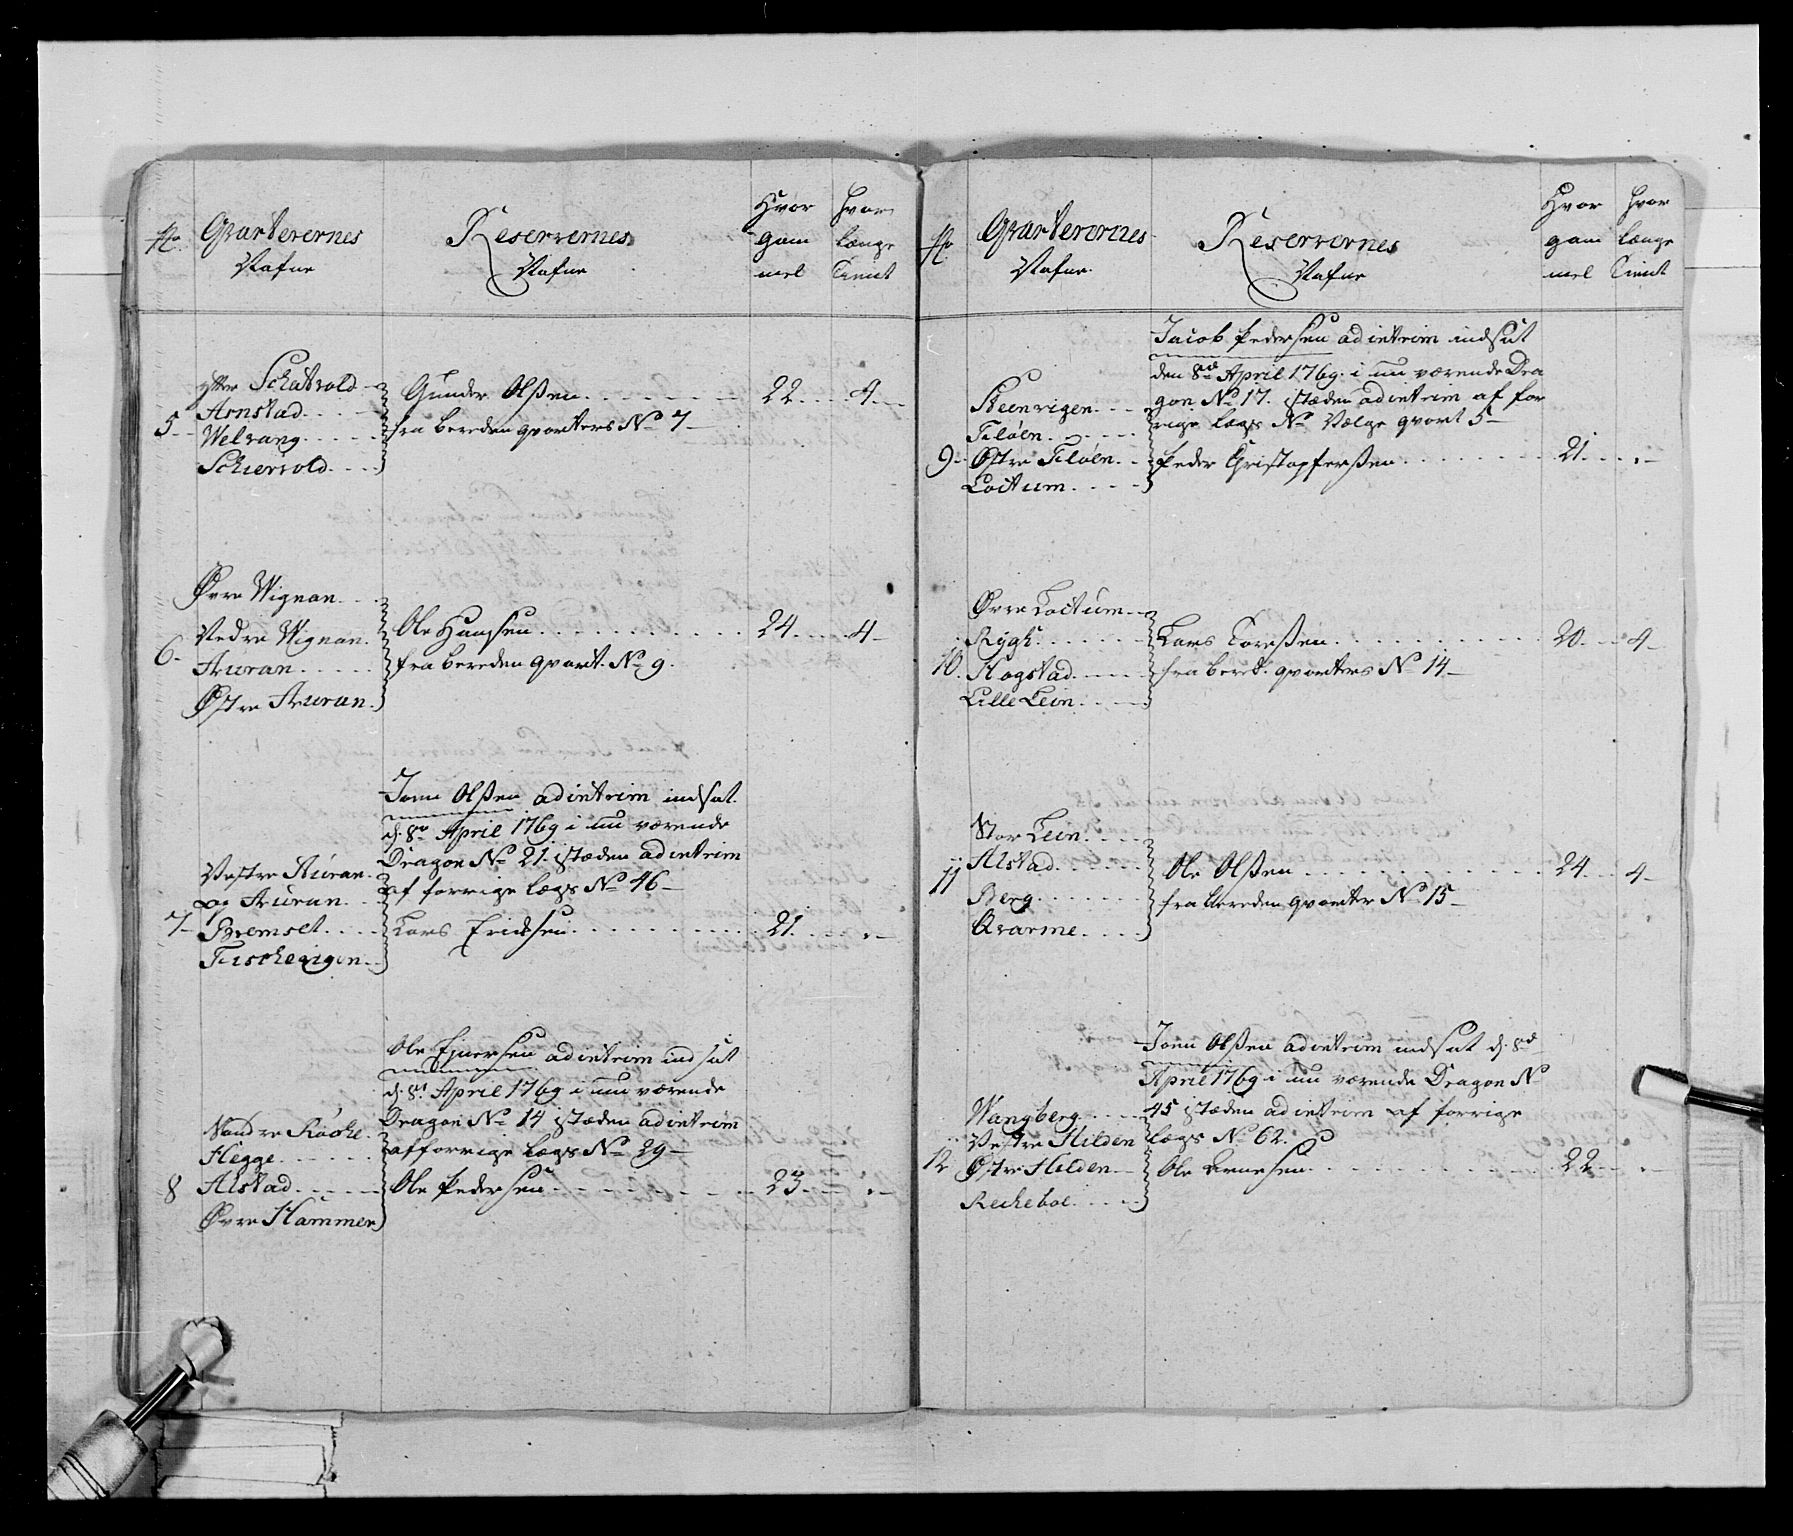 No
Qvarterernes
Nafne
Reservernes
Nafne
Hvor
gam
mel
hvor
længe
tient
5
Ytter Schatvold
Arnstad
Welvang
Schiervold
Gunder Olssen 22 4
fra bereden qvarters No 7
6
Øvre Wignan
Nedre Wignan
Auran
Østre Auran
Ole Hansen 24 4
fra bereden qvart. No 9
7
Vestre Auran
og Auran
Bremset
Fischevigen
Joen Olssen ad intrim indsat
d. 8de April 1769 i nu værende
Dragon No 21 stæden ad intrim
af forrige lægs No 46
Lars Ericksen 21
8
Nordre Kösche
Hegge
Alstad
Øvre Hammer
Ole Ejnersen ad intrim indsat
d. 8de April 1769 i nu værende
Dragon No 14 stæden ad intrim
af forrige lægs No 29
Ole Pedersen 23
No
Qvarterernes
Nafne
Reservernes
Nafne
Hvor
gam
mel
hvor
længe
tient
9
Steenvigen
Filöen
Østre Filöen
Loctum
Jacob Pedersen ad intrim indsat
den 8de April 1769 i nu værende Dra
gon No 17 stæden ad intrim af for
rige lægs No Vælge qvart 5
Peder Christopferssen 21
10
Øvre Loctum
Rygh
Hogstad
Lille Lein
Lars Larssen 20 4
fra bered. qvarters No 14
11
Stor Lein
Alstad
Berg
Qvarme
Ole Olssen 24 4
fra bereden qvarter No 15
12
Wangberg
Vestre Hilden
Østre Hilden
Reckeboe
Joen Olssen ad intrim indsat d. 8de
April 1769 i nu værende Dragon No
45 stæden ad intrim af forrige
lægs No 62
Ole Arnesen 22